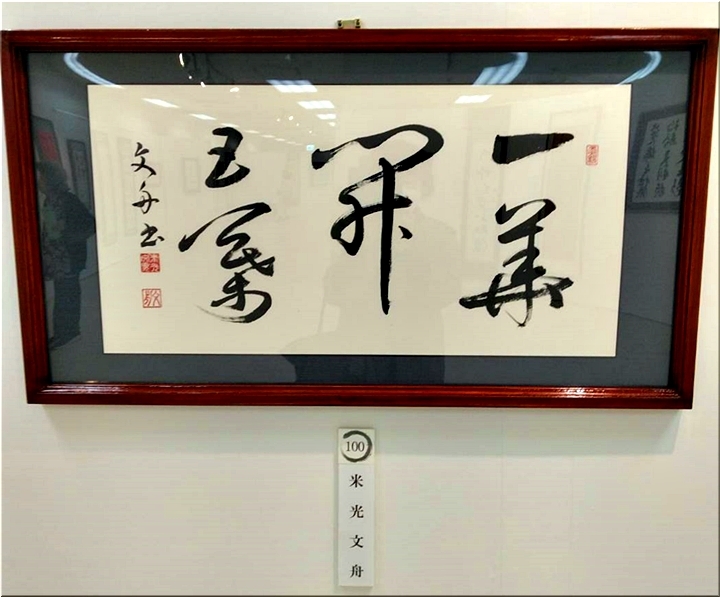 一華
開
五葉
文舟書
100
米光文舟